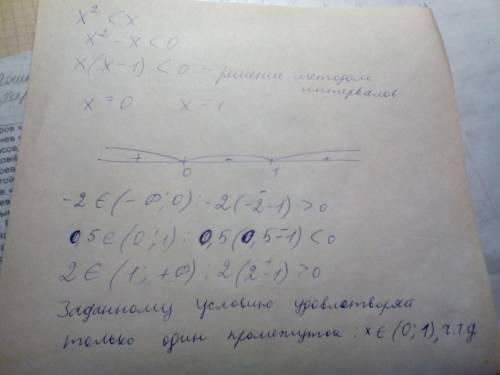 x² < x
x² - x < 0
x(x-1) < 0 - решение методом
интервалов
x = 0 x = 1
+ - +
0 1
-2 ∈ (-∞; 0) : -2(-2-1) > 0
0,5 ∈ (0; 1) : 0,5(0,5-1) < 0
2 ∈ (1; +∞) : 2(2-1) > 0
Заданному условию удовлетворяй
только один промежуток: x ∈ (0; 1), ч.т.д